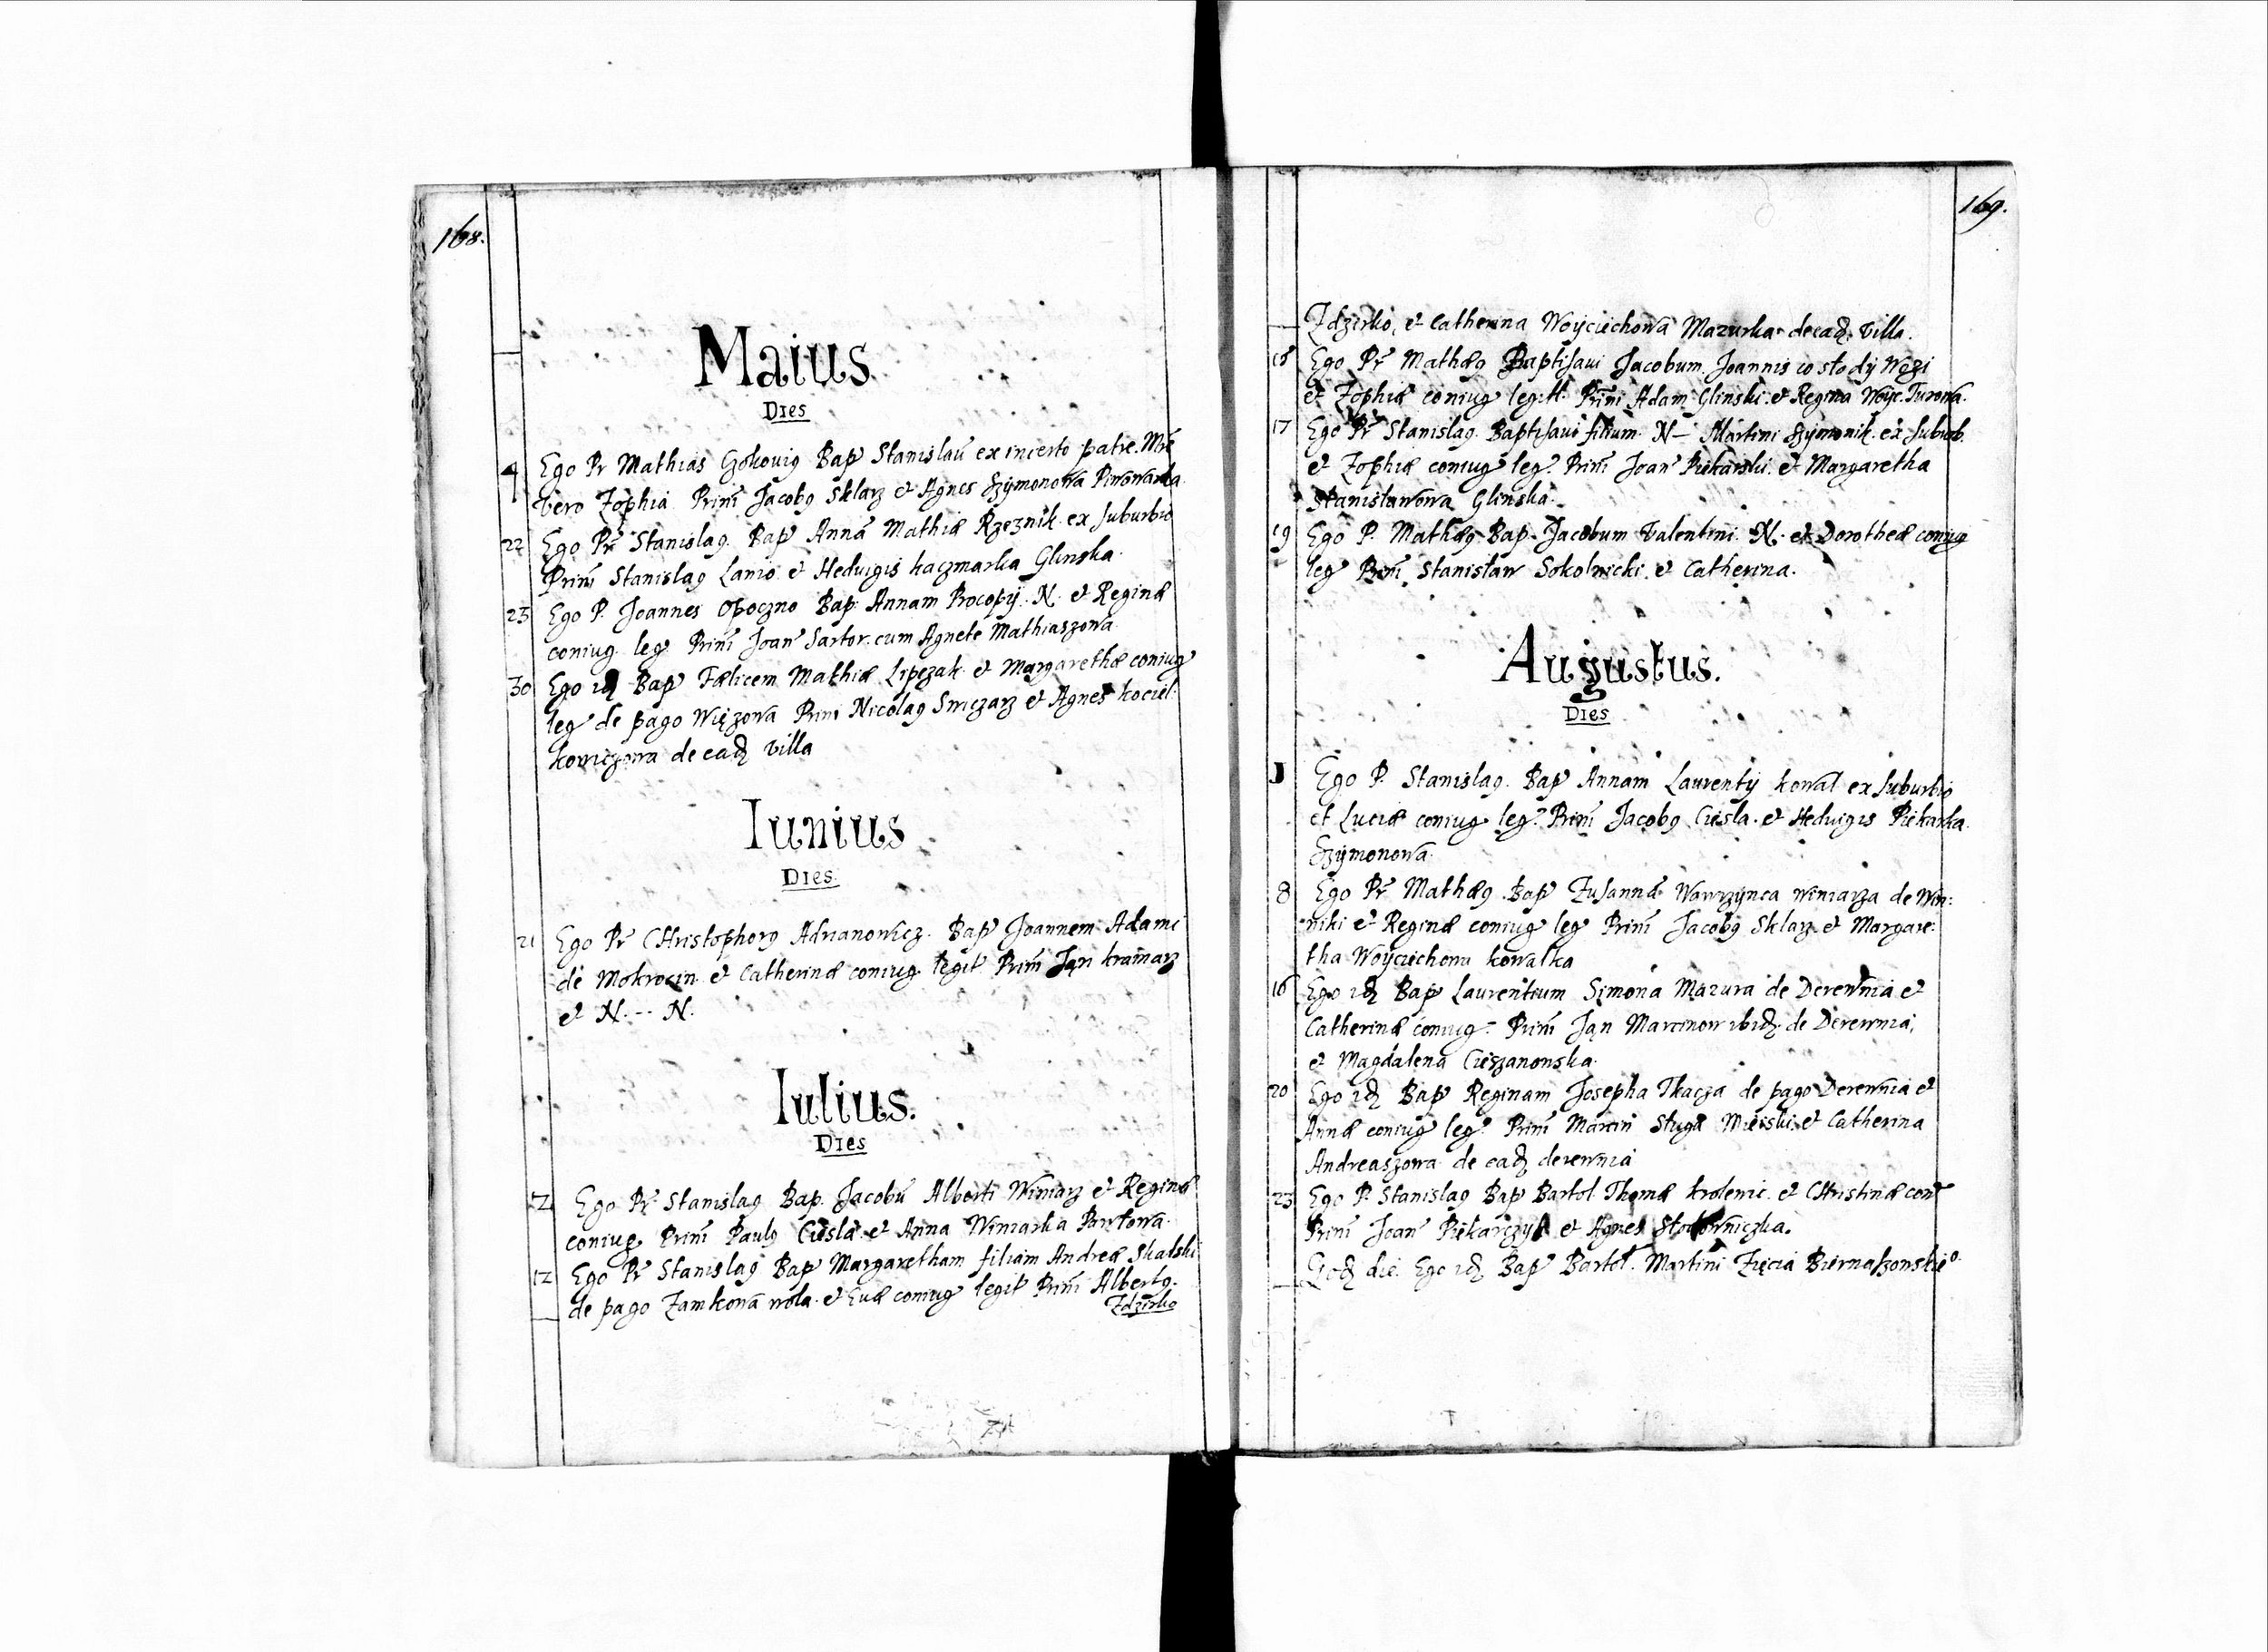 168.
Maius
Dies
4 Ego Pr Mathias Bap Stanislaũ ex incerto patre. Mrẽ
vero Zophia Prim̃ Jacobg Sklarz et Agnes Szÿmonowa Piwowarka
22 Ego Pr̃ Stanislag. Bap Annã Mathiæ Rzeznik. ex suburbio
Prim̃ Stanislag Lanio et Hedvigis kaczmarka Glinska.
23 Ego P. Joannes Opoczno Bap: Annam Procopij. N. et Reginæ
coniug. leg Prim̃ Joan Sartor. cum Agnete Mathiaszowa
30 Ego idẽ Bap Fælicem Mathiæ Lipczak. et Margarethæ coniug
leg de pago Więzowa Prim̃ Nicolag et Agnes kociel:
kowiczowa de eadẽ villa
Iunius
Dies.
21 Ego Pr̃ CHristophorg Adrianowicz. Bap Joannem Adami
de Mokrocin et Catherinæ coniug. legit Prim̃ Jan kramarz
et N. -- N.
Iulius.
Dies
Ego Pr̃ Stanislag Bap. Jacobũ Alberti Winiarz et Reginæ
coniug Prim̃ Paulg Ciesla et Anna Winiarka Pawłowa.
12 Ego Pr̃ Stanislag Bap Margaretham filiam Andreæ Skalski
de pago Zamkowa wola. et Evæ coniug legit Prim̃ Albertg.
Zdzirko
169.
Zdzirko, et Catherina Woÿciechowa Mazurka de eadẽ. villa.
16 Ego Pr̃ Mathæg Baptisavi Jacobum Joannis co słodÿ
et Zophiæ coniug legitt. Prim̃ Adam Glinski. et Regina Woÿc. Turowa.
17 Ego Pr̃ Stanislag. Baptisavi filium. N— Martini Szÿmonik. ex suburb.
et Zophiæ coniug leg. Prim̃ Joan Piekarski. et Margaretha
Stanisławowa Glinska.
19 Ego P. Mathæg Bap. Jacobum Valentini. N. et Dorotheæ coniug
leg Prim̃. Stanisław Sokolnicki. et Catherina.
Augustus.
Dies
1 Ego P. Stanislag. Bap Annam Laurentÿ kowal ex suburbio
et Luciæ coniug leg. Prim̃ Jacobg Ciesla. et Hedvigis Piekarka
Szÿmonowa.
8 Ego Pr̃ Mathæg. Bap Zusannã Wawrzÿnca winiarza de Win:
niki et Reginæ coniug leg Prim̃ Jacobg Sklarz et Margare:
tha Woÿciechowa kowalka
16 Ego idẽ Bap Laurentium Simona Mazura de Derewnia et
Catherinæ coniug. Prim̃ Jan Marcinow ibidẽ. de Derewnia,
et Magdalena Cieszanowska.
20 Ego idẽ Bap Reginam Josepha Tkacza de pago Derewnia et
Annæ coniug leg. Prim̃ Marcin sługa Mieiski. et Catherina
Andreaszowa de eadẽ derewnia
23 Ego P. Stanislag Bap Bartol. Thomæ krolewic. et CHristinæ con
Prim̃ Joan Piekarczyk et Agnes
die. Ego idẽ Bap Bartol. Martini Zięcia